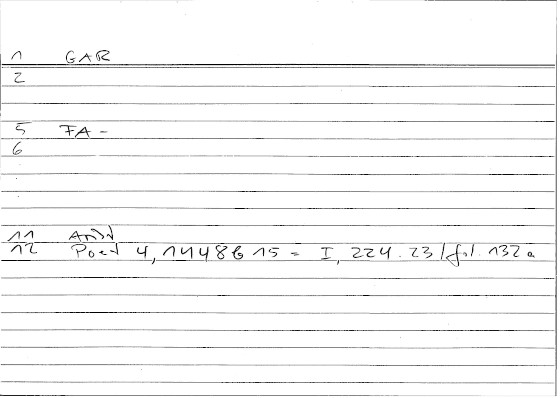 1 GAR
2
5 FA -
6
11 Arab
12 Poet 4, 1448b 15 = I, 224.23 / fol. 132a